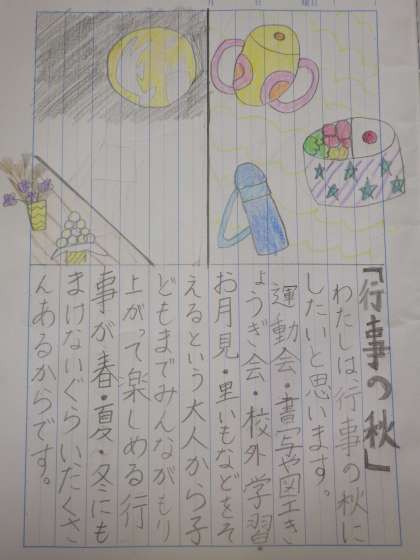 月 日 曜日
「行事の秋」
わたしは行事の秋に
したいと思います。
運動会・書写や図工き
ょうぎ会・校外学習
お月見・里いもなどをそ
えるという大人から子
どもまでみんながもり
上がって楽しめる行
事が春・夏・冬にも
まけないぐらいたくさ
んあるからです。